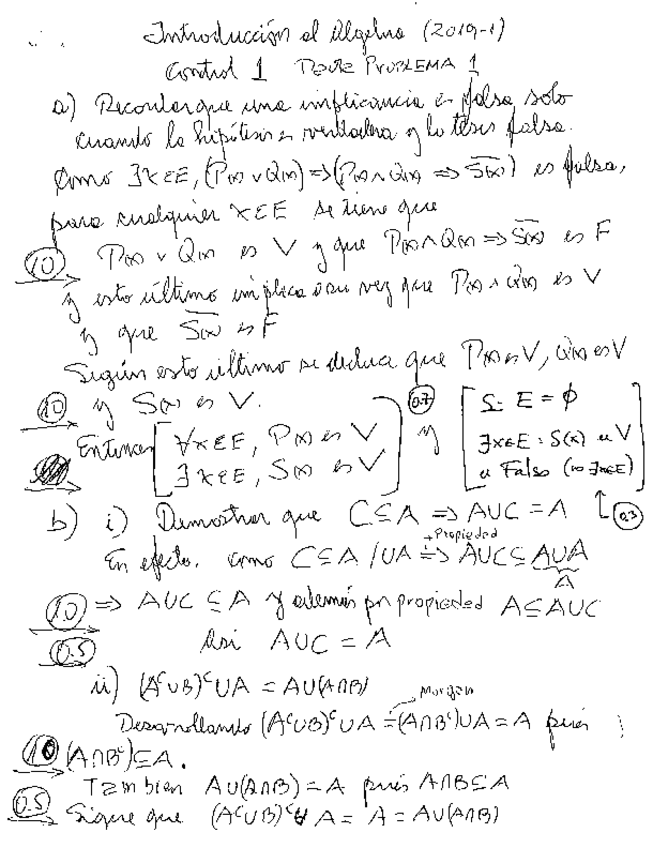 Introducción al Algebra (2019-1)
Control 1 Pauta PROBLEMA 1
a) Recordar que una implicancia es falsa solo
cuando la hipótesis es verdadera y la tesis falsa.
Como ∃x∈E, (P(x) ∨ Q(x)) ⇒ (P(x) ∧ Q(x) ⇒ \overline{S(x)}) es falsa,
para cualquier x∈E se tiene que
1.0 P(x) ∨ Q(x) es V y que P(x) ∧ Q(x) ⇒ \overline{S(x)} es F
y esto último implica a su vez que P(x) ∧ Q(x) es V
y que \overline{S(x)} es F
Según esto último se deduce que P(x) es V, Q(x) es V
1.0 y S(x) es V.
Entonces [∀x∈E, P(x) es V
∃x∈E, S(x) es V] 0.7 y [Si E = ∅
∃x∈E: S(x) es V
es Falso (no ∃x∈E)] 0.3
b) i) Demostrar que C⊆A ⇒ A∪C = A
En efecto. Como C⊆A /∪A ⇒ +Propiedad A∪C ⊆ A∪A
A
1.0 ⇒ A∪C ⊆ A y además por propiedad A⊆A∪C
0.5 Asi A∪C = A
ii) (A^c∪B)^c∪A = A∪(A∩B)
Morgan
Desarrollando (A^c∪B)^c∪A = (A∩B^c)∪A = A pues
1.0 (A∩B^c)⊆A.
Tambien A∪(A∩B) = A pues A∩B⊆A
0.5 Sigue que (A^c∪B)^c∪A = A = A∪(A∩B)